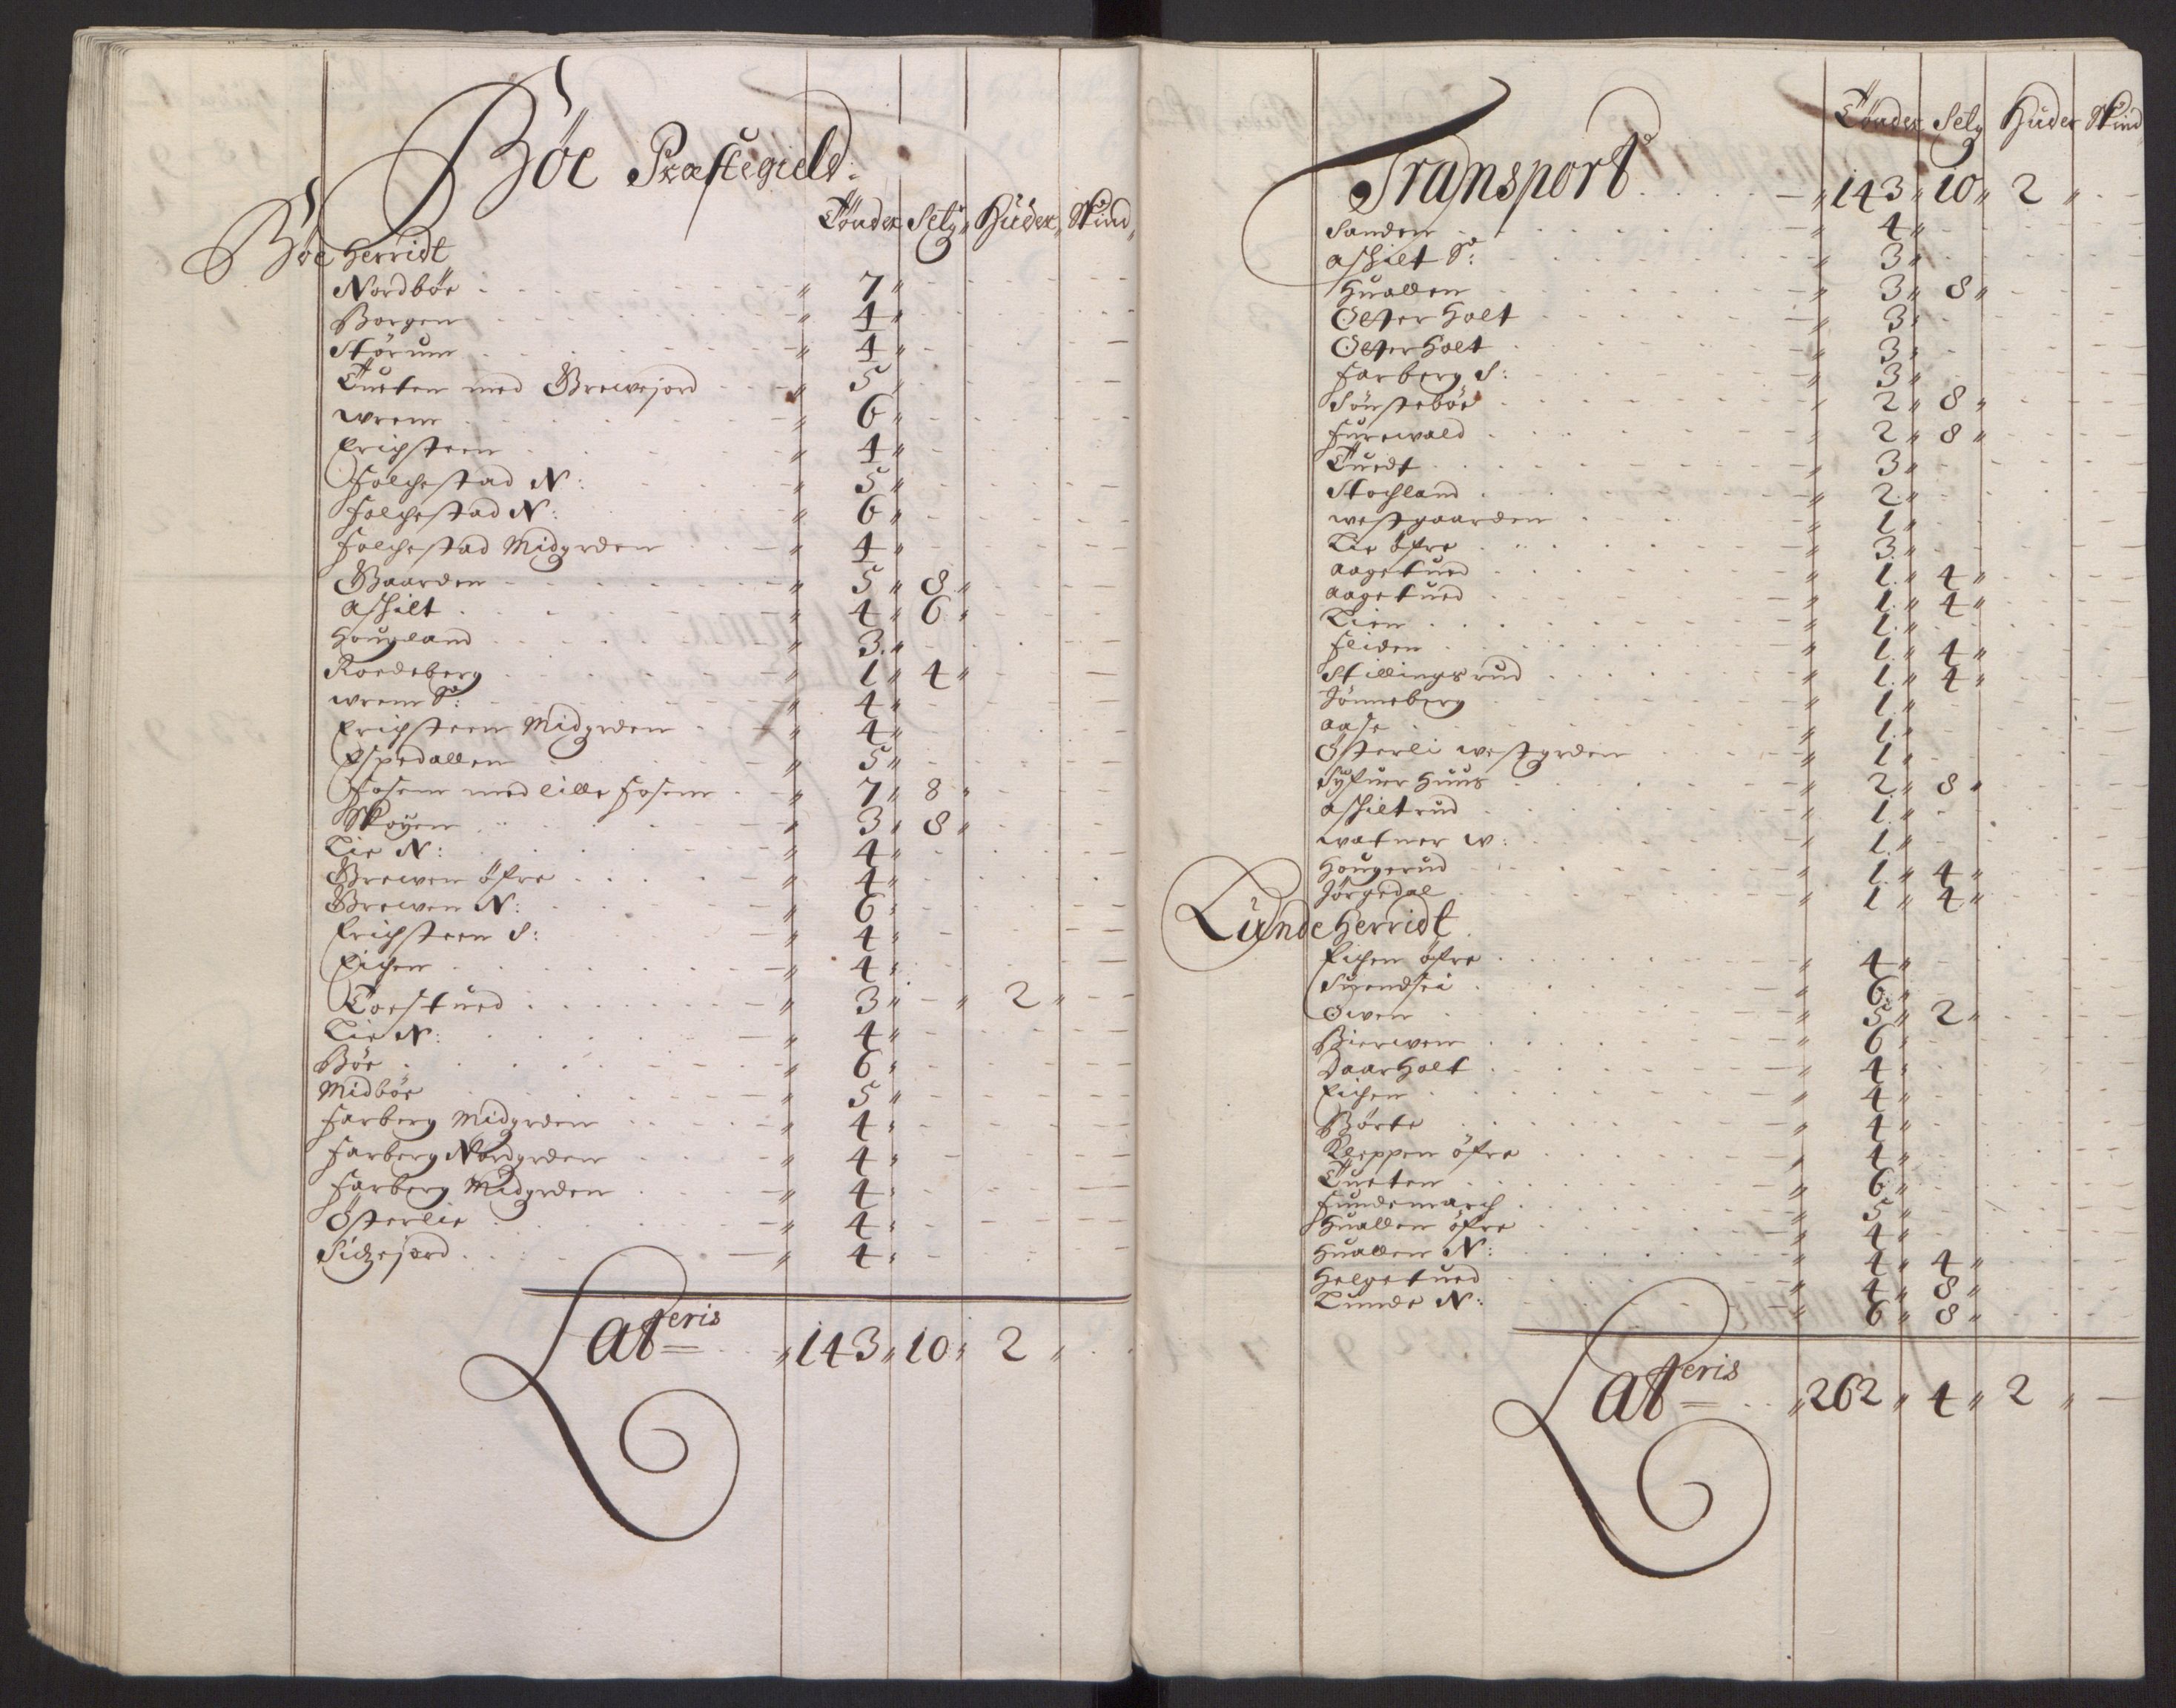 Böe Præstegield:
Tönder Setg Huder Skind
Böe Herridt
Nordböe - - " 7 "
Borgen " 4 "
Störum " 4 "
Tueten med Grewejord " 5 "
Wrem " 6 "
Erichsteen " 4 "
Folchestad N: " 5 "
Folchestad N: " 6 "
Folchestad Midgrden " 4 "
Gaarden " 5 " 8 "
Askilt " 4 " 6 "
Hougland " 3 "
Roedeberg " 1 " 4 "
Wrem Sr: " 4 "
Erichsteen Midgrden " 4 "
Espedallen " 5 "
Fosem med lille Fosem " 7 " 8 "
Skoyen " 3 " 8 "
Lie N: " 4 "
Grewen öfre " 4 "
Grewen N: " 6 "
Erichsteen S: " 4 "
Eichen " 4 "
Torstued " 3 " - " 2 "
Lie N: " 4 "
Böe " 6 "
Midböe " 5 "
Farberg Midgrden " 4 "
Farberg Nordgrden " 4 "
Farberg Midgrden " 4 "
Österlie " 4 "
Sidzejord " 4 "
Lateris " 143 " 10 " 2 "
Tönder Setg Huder Skind
Transport " 143 " 10 " 2 "
Sanden 4 "
Askilt Sr: " 3 "
Huallen " 3 " 8 "
Olter Holt " 3 "
Olter Holt " 3 "
Farberg S: " 3 "
Sönsteböe " 2 " 8 "
Furewald " 2 " 8 "
Tuedt " 3 "
Stochland " 2 "
Westgaarden " 1 "
Lie öfre " 3 "
Aagetued " 1 " 4 "
Aagetued " 1 " 4 "
Lien " 1 "
Fliden " 1 " 4 "
Stillingsrud " 1 " 4 "
Jönneberg " 1 "
Aase " 1 "
Österli Westgrden " 1 "
Syfuer Huus " 2 " 8 "
Askiltrud " 1 "
Watner W: " 1 "
Hougerud " 1 " 4 "
Jörgedal " 1 " 4 "
Lunde Herridt
Eichen öfre " 4 "
Suendsei " 6 "
Owen " 5 " 2 "
Bierwen " 6 "
Daarholt " 4 "
Eichen " 4 "
Börte " 4 "
Kleppen öfre " 4 "
Tueten " 6 "
Fundemarch " 5 "
Huallen öfre " 4 "
Huallen N: " 4 " 4 "
Helgetued " 4 " 8 "
Lunde N: " 6 " 8 "
Lateris " 262 " 4 " 2 " -